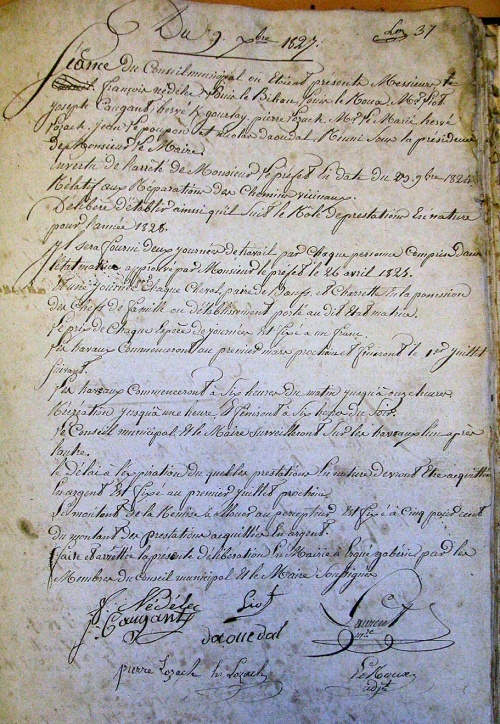 Du 9. 7bre 1827.
37
Séance du Conseil municipal ou étaient présents Messieurs
françois nédélec, Louis le Bihan, Louis le Roux, Mr Piot
joseph Caugant, hervé K gourlay, pierre Lozach, Mr le Marié hervé
Lozach, jean le poupon et nicolas daouedal Réunis sous la présidence
de Monsieur le Maire.
En vertu de l'arrêté de Monsieur le préfet en date du 29 9bre 1824
Relatif aux Réparations des Chemins vicinaux.
Délibère d'établir ainsi qu'il suit le Role de prestations En nature
pour l'année 1828.
Il sera fourni deux journées de travail par Chaque personne Comprise dans
l'état matrice approuvé par Monsieur le préfet le 26 avril 1825.
Et une journée Chaque Cheval, paire de Bœufs, et Charrette En la possession
des Chefs de famille ou d'établissement porté au dit Etat matrice.
Le prix de Chaque Espèce de journée Est fixé a un franc.
Les travaux Commenceront au premier mars prochain et finiront le 1er juillet
suivant.
Les travaux Commenceront à Six heures du matin jusqu'à onze heures
Récréation jusqu'a une heure Et finiront à Six heures du Soir.
Le Conseil municipal Et le Maire Surveilleront Sur les travaux l'un après
l'autre.
le délai a l'expiration du quel les prestations En nature devront être acquittées
En argent Est fixé au premier juillet prochain.
Le montant de la Remise à allouer au percepteur Est fixé à Cinq pour cent
du montant des prestations acquittées En argent.
fait et arrêté la présente délibération En Mairie à Ergué gabéric par les
Membres du Conseil municipal Et le Maire Soussignés
f. Nédélec Piot Laurent
mre
j. Caugant daouedal
pierre Lozach hé Lozach Le Roux
adjt